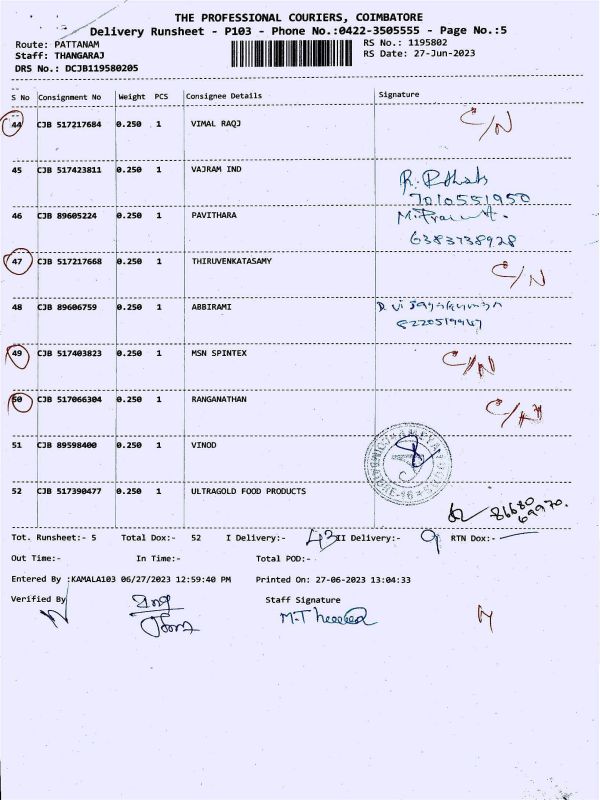 THE PROFESSIONAL COURIERS, COIMBATORE
Delivery Runsheet - P103 - Phone No.:0422-3505555 - Page No.:5
Route: PATTANAM
RS No.: 1195802
Staff: THANGARAJ
RS Date: 27-Jun-2023
DRS No.: DCJB119580205
S No Consignment No Weight PCS Consignee Details Signature
44 CJB 517217684 0.250 1 VIMAL RAQJ C/N
45 CJB 517423811 0.250 1 VAJRAM IND
7010551950
46 CJB 89605224 0.250 1 PAVITHARA
6383738928
47 CJB 517217668 0.250 1 THIRUVENKATASAMY C/N
48 CJB 89606759 0.250 1 ABBIRAMI
8220519947
49 CJB 517403823 0.250 1 MSN SPINTEX C/N
50 CJB 517066304 0.250 1 RANGANATHAN C/N
51 CJB 89598400 0.250 1 VINOD
52 CJB 517390477 0.250 1 ULTRAGOLD FOOD PRODUCTS
86680
69970.
Tot. Runsheet:- 5 Total Dox:- 52 I Delivery:- 43 II Delivery:- 9 RTN Dox:-
Out Time:- In Time:- Total POD:-
Entered By :KAMALA103 06/27/2023 12:59:40 PM Printed On: 27-06-2023 13:04:33
Verified By Staff Signature